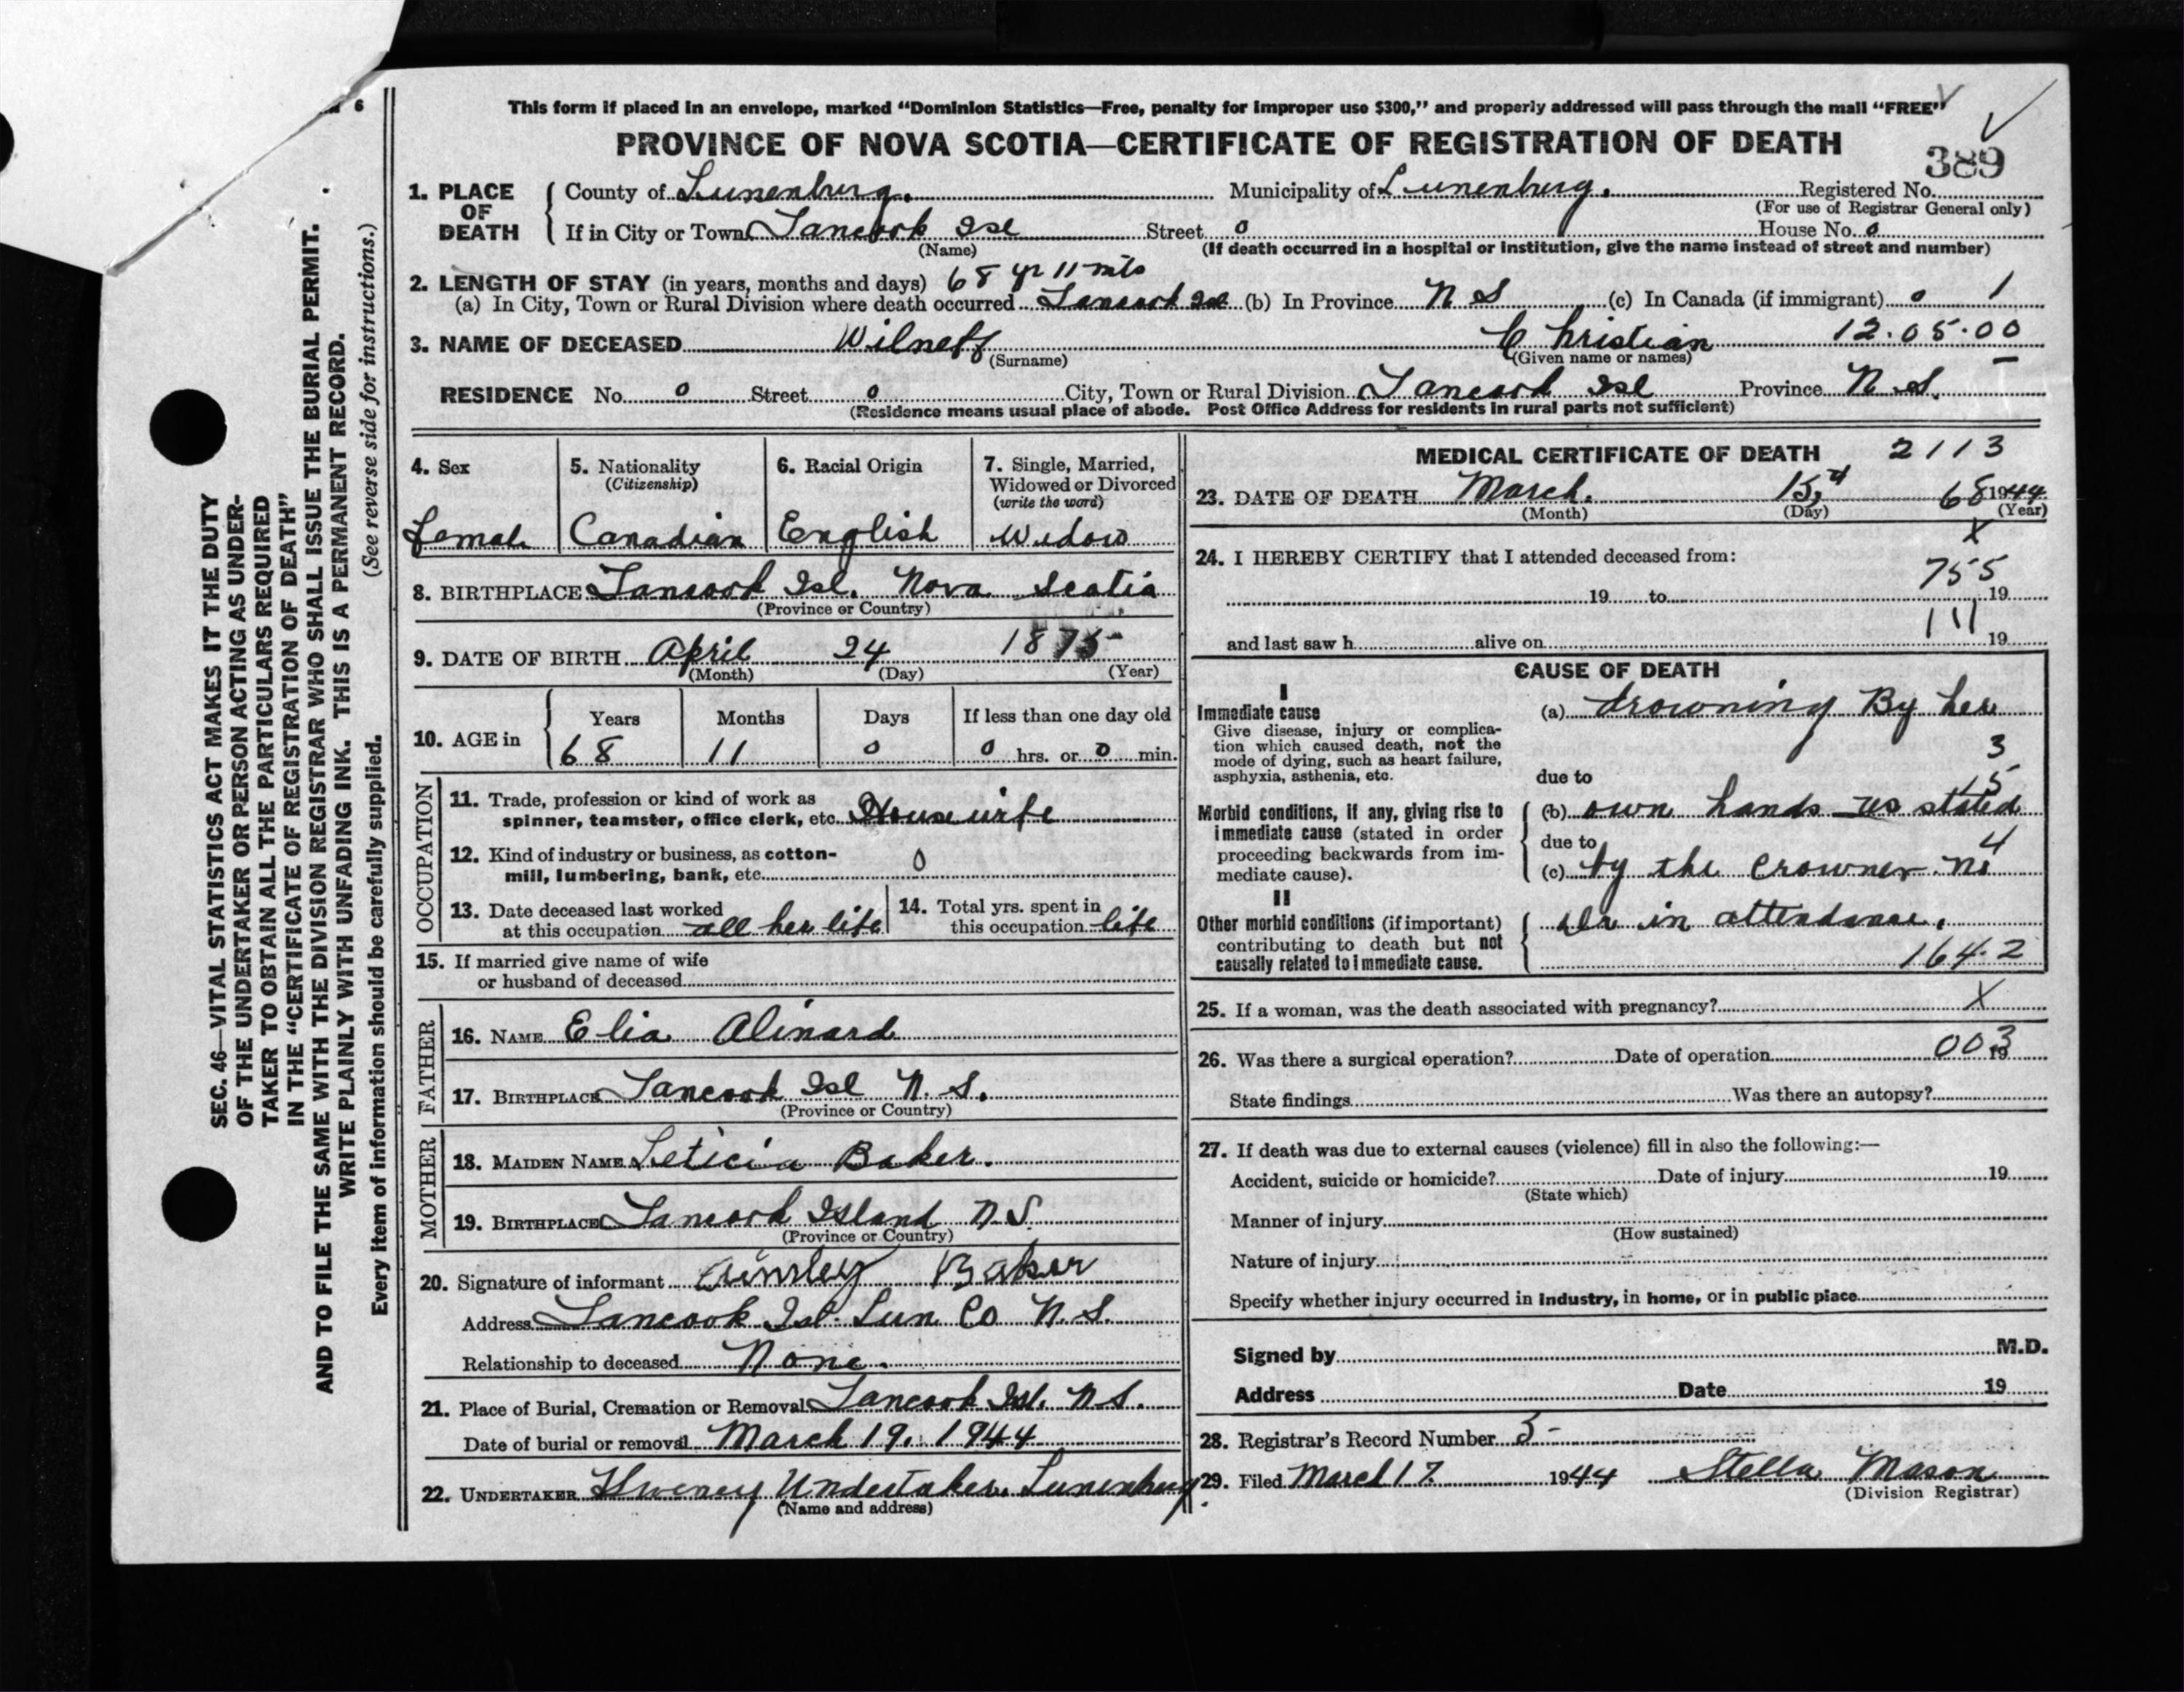 6
This form if placed in an envelope, marked “Dominion Statistics—Free, penalty for improper use $300,” and properly addressed will pass through the mail “FREE”
PROVINCE OF NOVA SCOTIA—CERTIFICATE OF REGISTRATION OF DEATH
389
1. PLACE OF DEATH
County of Lunenburg. Municipality of Lunenburg. Registered No.
(For use of Registrar General only)
If in City or Town Tancook Isl Street 0 House No. 0
(Name) (If death occurred in a hospital or institution, give the name instead of street and number)
2. LENGTH OF STAY (in years, months and days) 68 yr 11 mts
(a) In City, Town or Rural Division where death occurred Tancook Isl (b) In Province N S (c) In Canada (if immigrant) 0 1
3. NAME OF DECEASED Wilneff Christian 12.05.00
(Surname) (Given name or names)
RESIDENCE No. 0 Street 0 City, Town or Rural Division Tancook Isl Province N.S.
(Residence means usual place of abode. Post Office Address for residents in rural parts not sufficient)
4. Sex
Female
5. Nationality
(Citizenship)
Canadian
6. Racial Origin
English
7. Single, Married,
Widowed or Divorced
(write the word)
Widow
8. BIRTHPLACE Tancook Isl. Nova Scotia
(Province or Country)
9. DATE OF BIRTH April 24 1875
(Month) (Day) (Year)
10. AGE in
Years Months Days If less than one day old
68 11 0 0 hrs. or 0 min.
OCCUPATION
11. Trade, profession or kind of work as
spinner, teamster, office clerk, etc. Housewife
12. Kind of industry or business, as cotton-
mill, lumbering, bank, etc. 0
13. Date deceased last worked
at this occupation all her life
14. Total yrs. spent in
this occupation life
15. If married give name of wife
or husband of deceased
FATHER
16. NAME Elia Alinard
17. BIRTHPLACE Tancook Isl N.S.
(Province or Country)
MOTHER
18. MAIDEN NAME Leticia Baker.
19. BIRTHPLACE Tancook Island N.S.
(Province or Country)
20. Signature of informant Baker
Address Tancook Isl. Lun Co N.S.
Relationship to deceased None.
21. Place of Burial, Cremation or Removal Tancook Isl. N.S.
Date of burial or removal March 19. 1944
22. UNDERTAKER Undertaker. Lunenburg.
(Name and address)
MEDICAL CERTIFICATE OF DEATH 2113
23. DATE OF DEATH March. 15th 68 1944
(Month) (Day) (Year)
X
24. I HEREBY CERTIFY that I attended deceased from:
755
19 to 19
111
and last saw h alive on 19
CAUSE OF DEATH
I
Immediate cause
Give disease, injury or complica-
tion which caused death, not the
mode of dying, such as heart failure,
asphyxia, asthenia, etc.
(a) drowning By her
3
due to
15
Morbid conditions, if any, giving rise to
immediate cause (stated in order
proceeding backwards from im-
mediate cause).
(b) own hands as stated
due to 4
(c) by the Crowner. No
II
Other morbid conditions (if important)
contributing to death but not
causally related to immediate cause.
Dr in attendance.
164.2
25. If a woman, was the death associated with pregnancy? X
26. Was there a surgical operation? Date of operation 19
003
State findings Was there an autopsy?
27. If death was due to external causes (violence) fill in also the following:—
Accident, suicide or homicide? Date of injury 19
(State which)
Manner of injury
(How sustained)
Nature of injury
Specify whether injury occurred in industry, in home, or in public place
Signed by M.D.
Address Date 19
28. Registrar's Record Number 5-
29. Filed March 17. 1944 Stella Mason
(Division Registrar)
SEC. 46—VITAL STATISTICS ACT MAKES IT THE DUTY
OF THE UNDERTAKER OR PERSON ACTING AS UNDER-
TAKER TO OBTAIN ALL THE PARTICULARS REQUIRED
IN THE “CERTIFICATE OF REGISTRATION OF DEATH”
AND TO FILE THE SAME WITH THE DIVISION REGISTRAR WHO SHALL ISSUE THE BURIAL PERMIT.
WRITE PLAINLY WITH UNFADING INK. THIS IS A PERMANENT RECORD.
Every item of information should be carefully supplied. (See reverse side for instructions.)